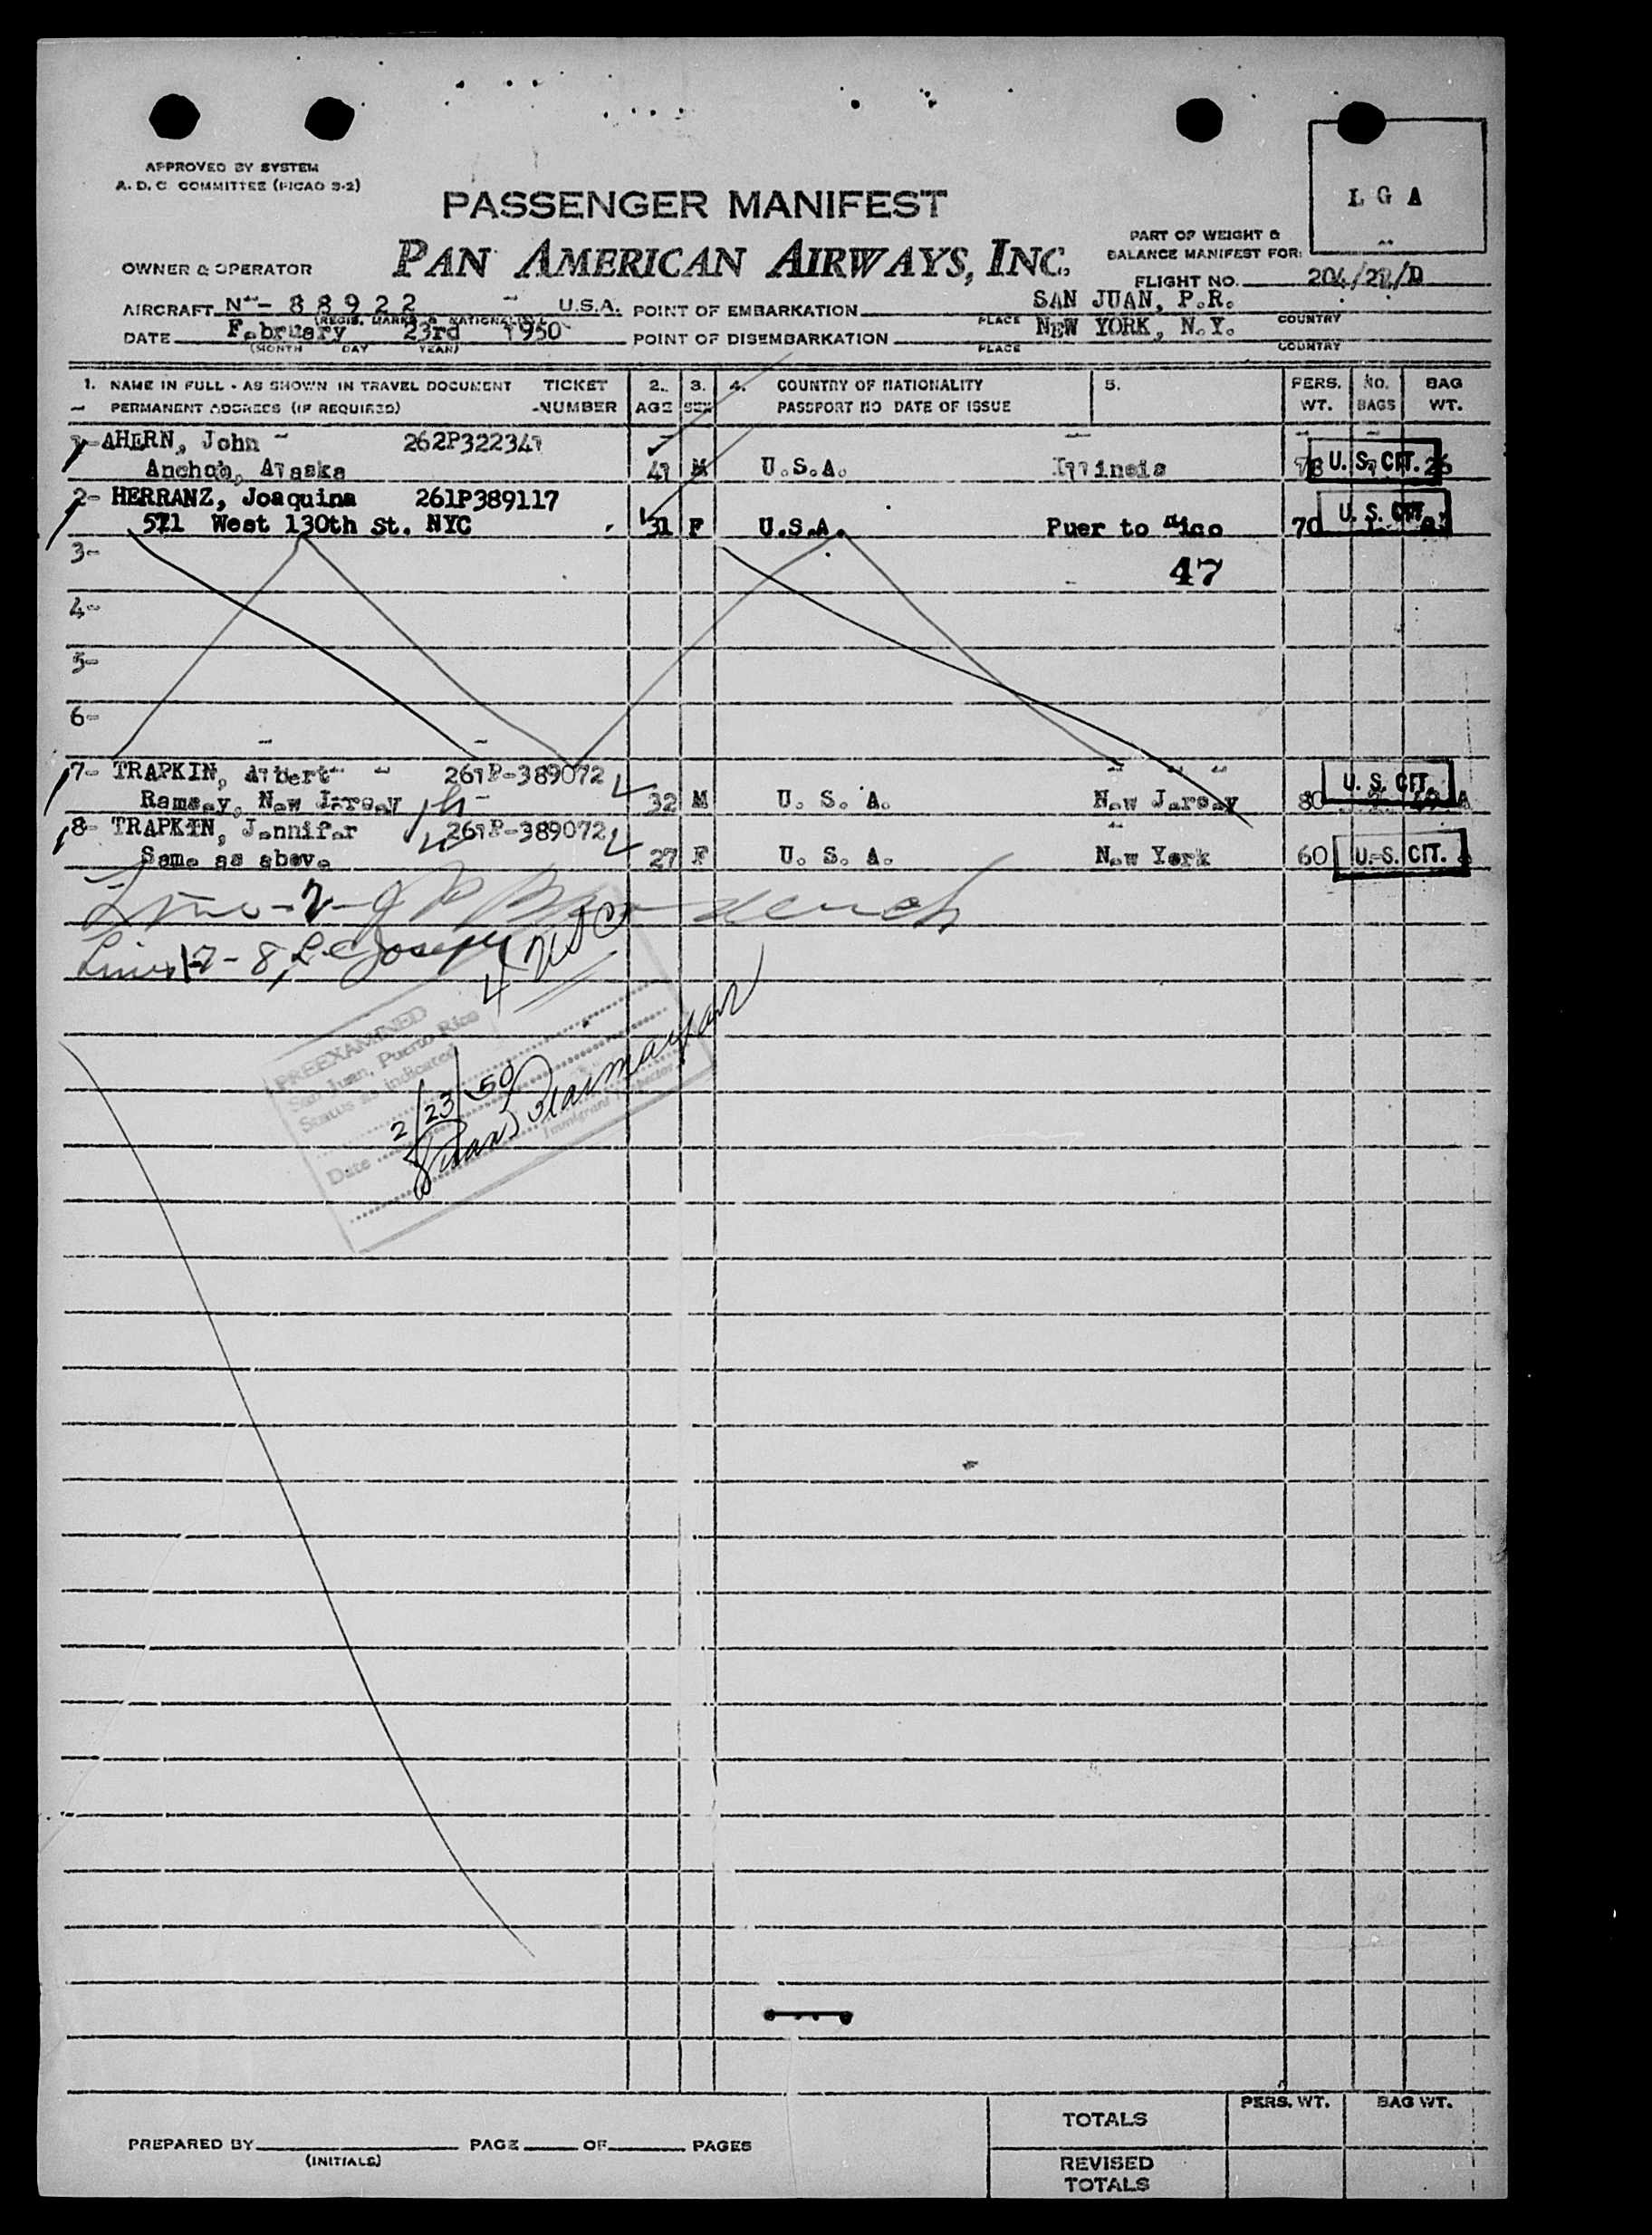 APPROVED BY SYSTEM
A. D. C. COMMITTEE (PICAO 9-2)
L G A
PASSENGER MANIFEST
PAN AMERICAN AIRWAYS, INC.
PART OF WEIGHT &
BALANCE MANIFEST FOR:
OWNER & OPERATOR
FLIGHT NO. 204/22/D
AIRCRAFT N - 88922 U.S.A. POINT OF EMBARKATION SAN JUAN, P.R.
(REGIS. MARKS & NATIONALITY) PLACE COUNTRY
DATE February 23rd 1950 POINT OF DISEMBARKATION NEW YORK, N.Y.
(MONTH DAY YEAR) PLACE COUNTRY
1. NAME IN FULL - AS SHOWN IN TRAVEL DOCUMENT TICKET 2. 3. 4. COUNTRY OF NATIONALITY 5. PERS. NO. BAG
PERMANENT ADDRESS (IF REQUIRED) -NUMBER AGE SEX PASSPORT NO DATE OF ISSUE WT. BAGS WT.
1- AHERN, John 262P322341
Anchob, Alaska 41 M U.S.A. Illinois 78 U. S. CIT. 26
2- HERRANZ, Joaquina 261P389117
521 West 130th St. NYC 31 F U.S.A. Puer to Rico 70 U. S. CIT.
3- 47
4-
5-
6-
7- TRAPKIN, Albert 261P-389072
Ramsey, New Jersey 32 M U. S. A. New Jersey 80 U. S. CIT.
8- TRAPKIN, Jennifer 261P-389072
Same as above 27 F U. S. A. New York 60 U. S. CIT.
Line - 2 - J P
Lines 1-7-8, L.C. Joseph
4 USC
PREEXAMINED
San Juan, Puerto Rico
Status as indicated
Date 2/23/50
Immigrant Inspector
TOTALS PERS. WT. BAG WT.
PREPARED BY PAGE OF PAGES
(INITIALS)
REVISED
TOTALS